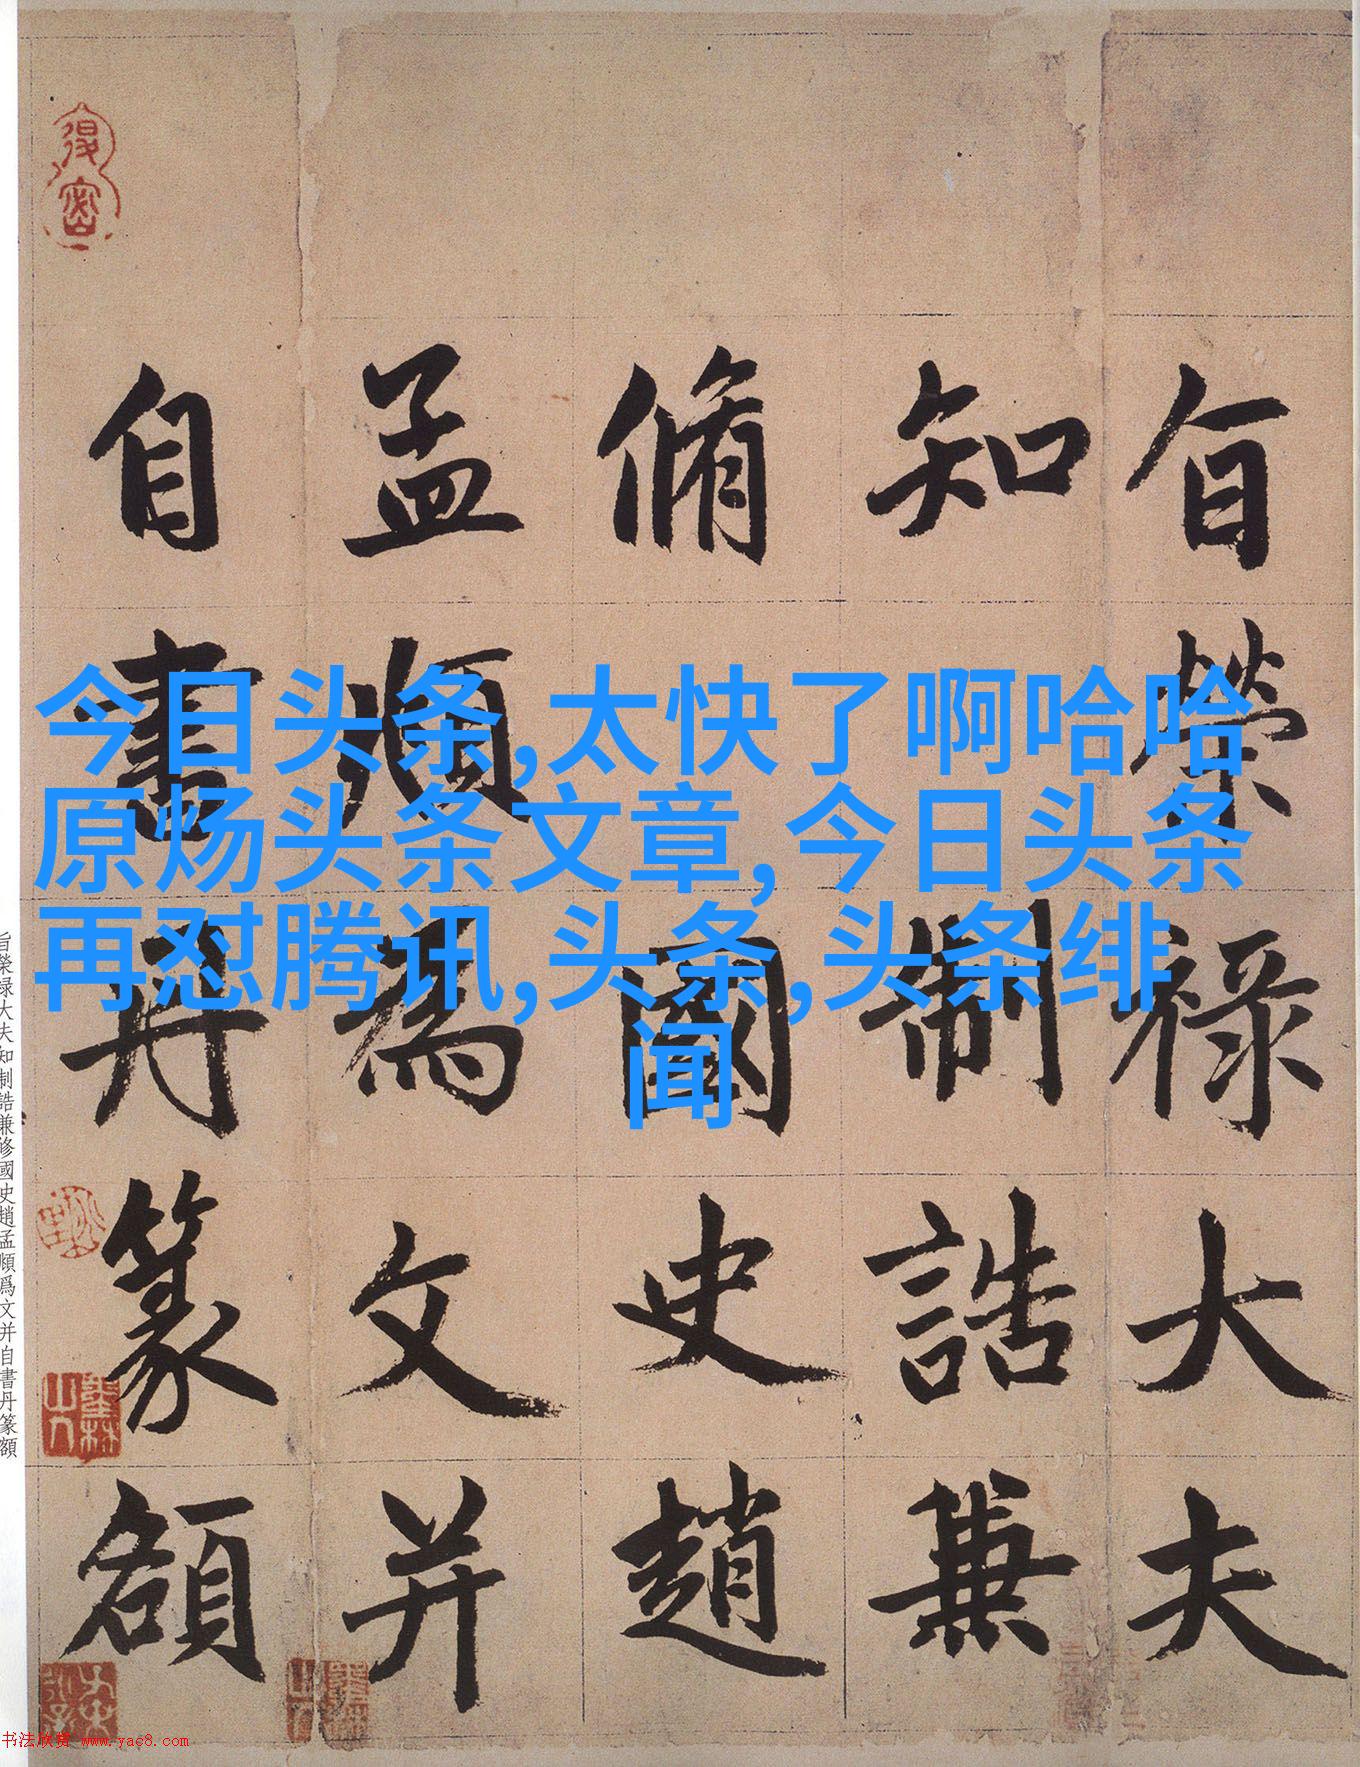 旨榮祿大夫
知制誥兼
脩國史趙
孟頫為文并
自書丹篆額
今日头条,太快了啊哈哈
原炀头条文章,今日头条
再怼腾讯,头条,头条绯
闻
旨榮禄大夫知制誥兼修國史趙孟頫爲文并自書丹篆額
书法欣赏 www.yac8.com